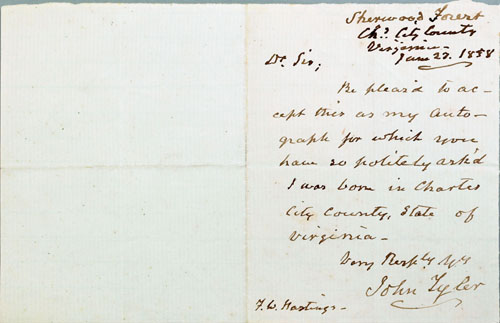 Sherwood Forest
Ch.s City County
Virginia -
June 27. 1858
Dr. Sir;
Be pleas'd to ac-
cept this as my auto-
graph for which you
have so politely ask'd
I was born in Charles
City County, State of
Virginia -
Very Resply Yrs
John Tyler
F. W. Hastings -